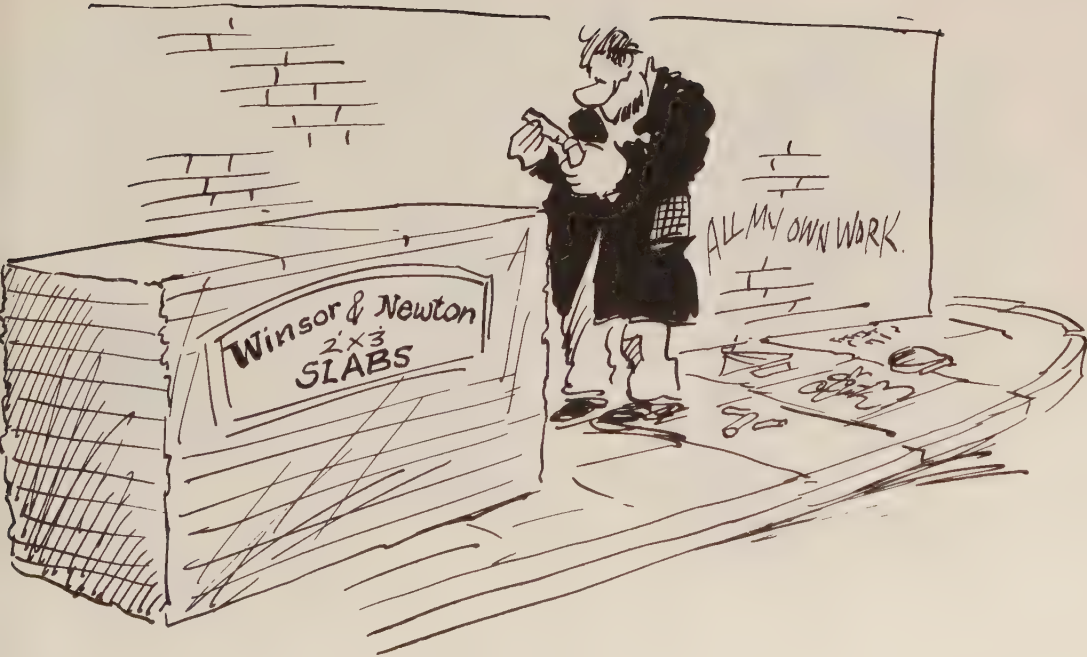 Winsor & Newton
2'×3'
SLABS
ALL MY OWN WORK.